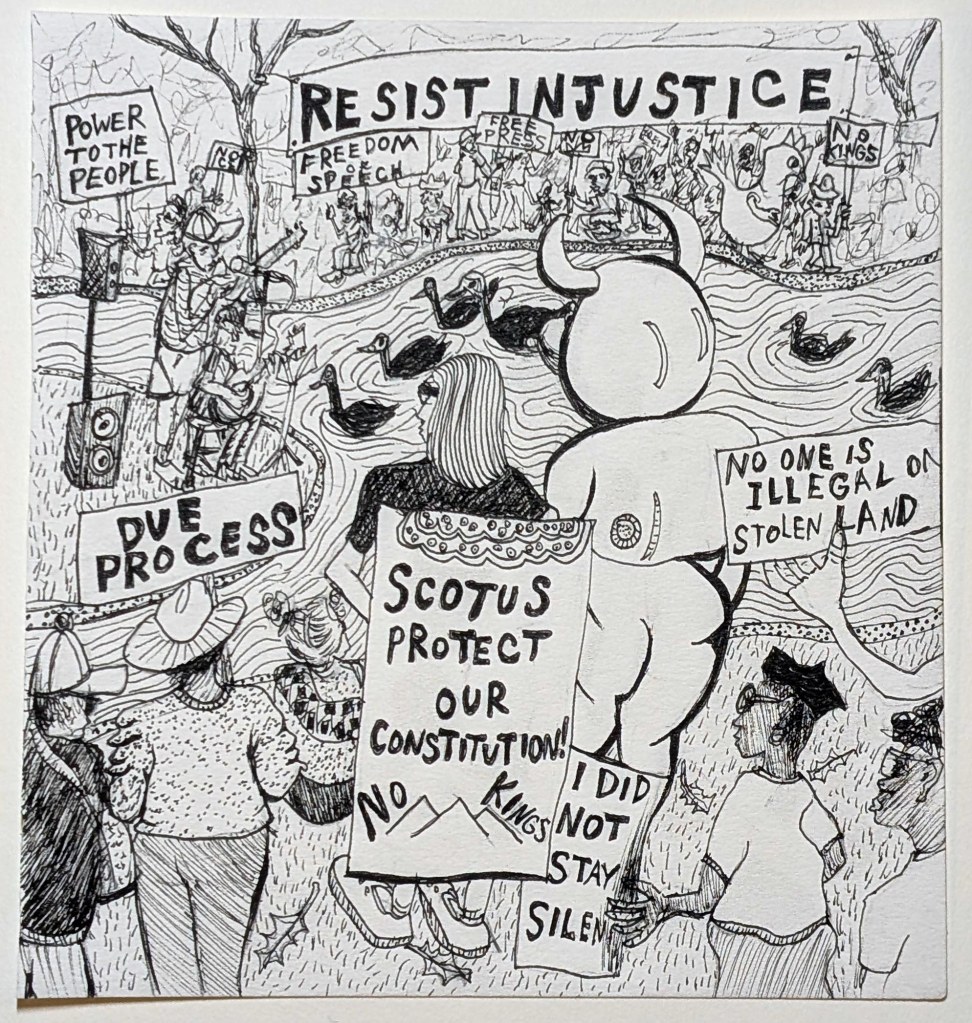 RESIST INJUSTICE
POWER
TO THE
PEOPLE
FREEDOM
of
SPEECH
FREE
PRESS
NO
NO
KINGS
NO ONE IS
ILLEGAL ON
STOLEN LAND
DUE
PROCESS
SCOTUS
PROTECT
OUR
CONSTITUTION!
NO KINGS
I DID
NOT
STAY
SILEN